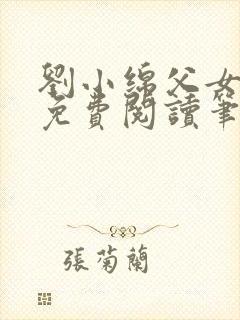 劉小綿父女
免費閱讀筆
張菊蘭